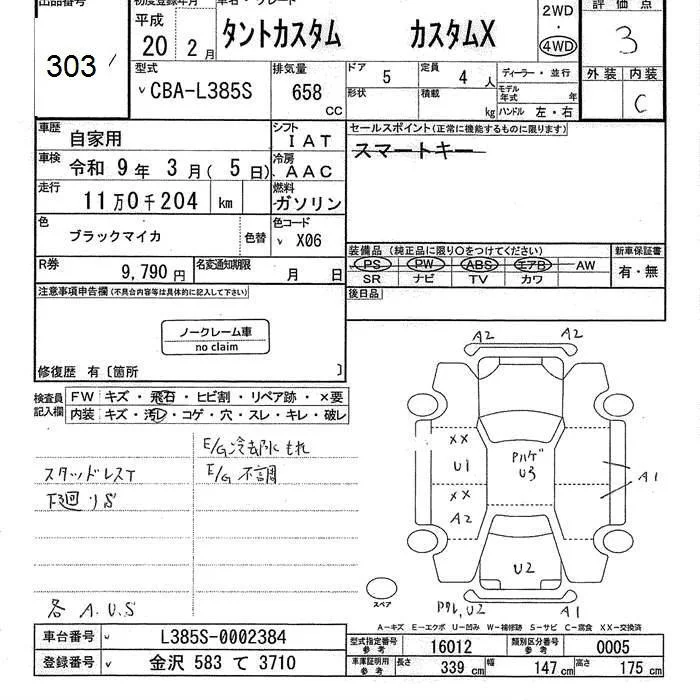 出品番号 初度登録年月 車名・グレード 評価点
303 平成 20 2月 タントカスタム カスタムX 2WD・4WD 3
型式 排気量 ドア 5 定員 4人 ディーラー・並行 外装 内装
CBA-L385S 658 CC 形状 積載 kg モデル年式 年 ハンドル 左・右 C
車歴 自家用 シフト IAT セールスポイント(正常に機能するものに限ります)
車検 令和 9年 3月(5日) 冷房 AAC スマートキー
走行 11万0千204 km 燃料 ガソリン
色 ブラックマイカ 色替 色コード X06
装備品 (純正品に限り○をつけてください) 新車保証書
R券 9,790円 名変通知期限 月 日 PS PW ABS エアB AW 有・無
SR ナビ TV カワ
注意事項申告欄(不具合内容等は具体的に記入して下さい) 後日品
ノークレーム車
no claim
修復歴 有〔箇所 〕
検査員記入欄 FW キズ・飛石・ヒビ割・リペア跡・×要
内装 キズ・汚レ・コゲ・穴・スレ・キレ・破レ
E/G冷却水もれ
スタッドレスT E/G不調
下廻りS
各 A.U.S
A2 A2
XX U1 U3 A1
XX A2
U2
スペア U2 A1
A-キズ E-エクボ U-凹み W-補修跡 S-サビ C-腐食 XX-交換済
車台番号 L385S-0002384 型式指定番号 参考 16012 類別区分番号 参考 0005
登録番号 金沢 583 て 3710 車庫証明用 参考 長さ 339cm 幅 147cm 高さ 175cm